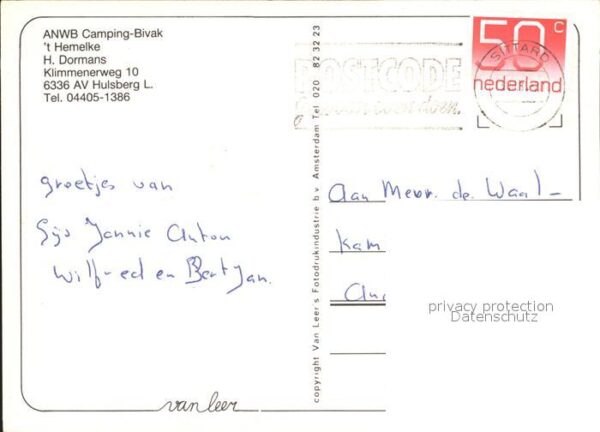 ANWB Camping-Bivak
't Hemelke
H. Dormans
Klimmenerweg 10
6336 AV Hulsberg L.
Tel. 04405-1386
50 c
nederland
SITTARD
POSTCODE
groetjes van
Gijs Jannie Anton
Wilfred en Bert Jan.
copyright Van Leer's Fotodrukindustrie b v Amsterdam Tel 020 82 32 23
Aan Mevr. de Waal-
Kam
privacy protection
Datenschutz
van leer